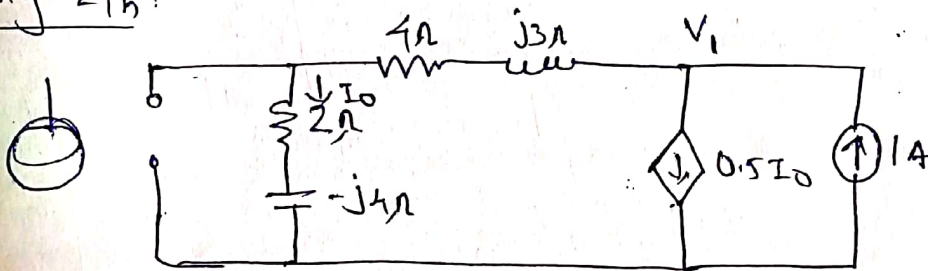 Zth
4Ω j3Ω V₁
↓I₀
2Ω
-j4Ω
↓ 0.5I₀
↑ 1A